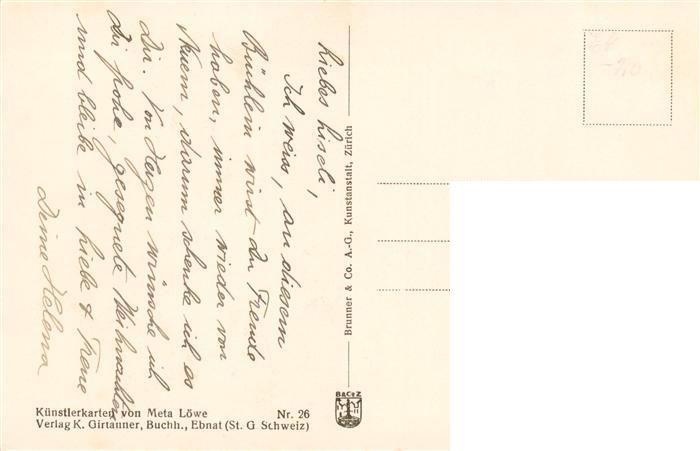 Liebes Liseli,
Ich weiss, an diesem
Büchlein wirst du Freude
haben, immer wieder von
Neuem, darum schenke ich es
Dir. Von Herzen wünsche ich
Dir frohe, gesegnete Weihnachten
und bleibe in Liebe & Treue
Deine Helena
Brunner & Co. A.-G., Kunstanstalt, Zürich
B&CºZ
Künstlerkarten von Meta Löwe Nr. 26
Verlag K. Girtanner, Buchh., Ebnat (St. G Schweiz)